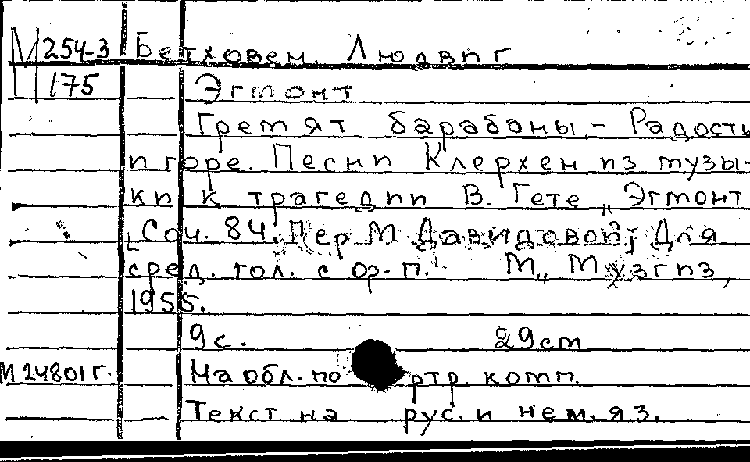 М 254-3 Бетховен, Людвиг
175 Эгмонт
Гремят барабаны – Радость
и горе. Песни Клерхен из музы-
ки к трагедии В. Гете „Эгмонт
[Соч. 84. Пер М Давидовой; Для
сред. гол. с ф-п. М., Музгиз,
1955.
9 с. 29 см
М 24801 г. На обл. по ртр. комп.
Текст на рус. и нем. яз.